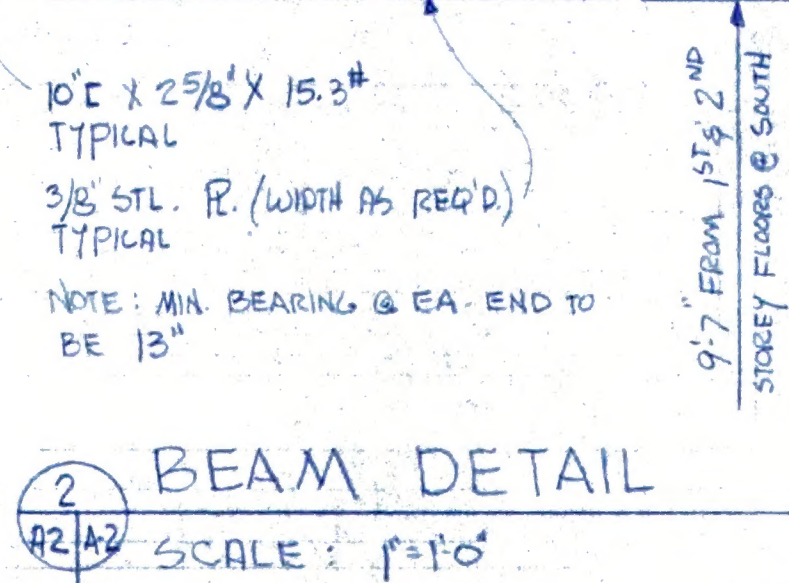 10"[ X 2 5/8" X 15.3#
TYPICAL
3/8" STL. PL. (WIDTH AS REQ'D.)
TYPICAL
NOTE: MIN. BEARING @ EA. END TO
BE 13"
9'-7" FROM 1ST & 2ND
STOREY FLOORS @ SOUTH
2
A2 A-2
BEAM DETAIL
SCALE: 1"=1'-0"